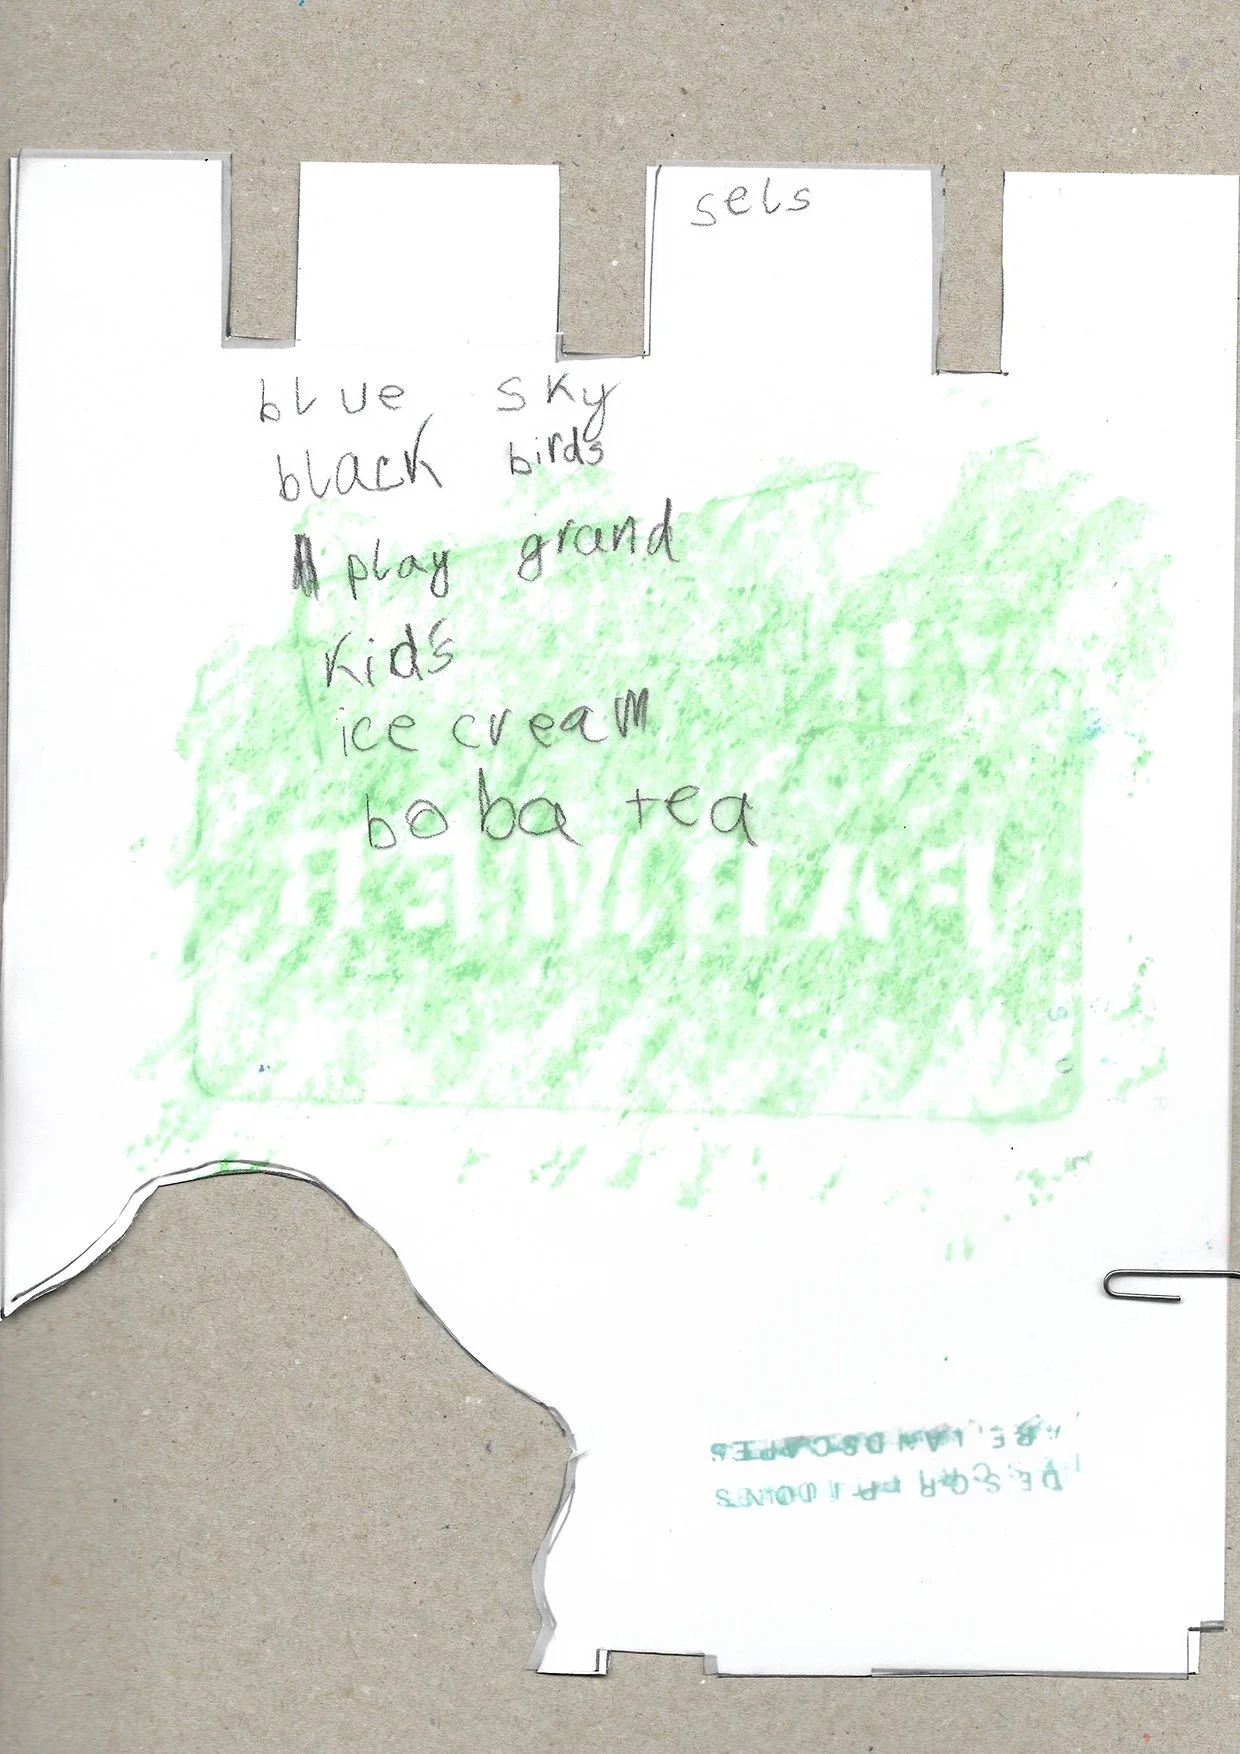 sels
blue sky
black birds
play grand
kids
ice cream
boba tea